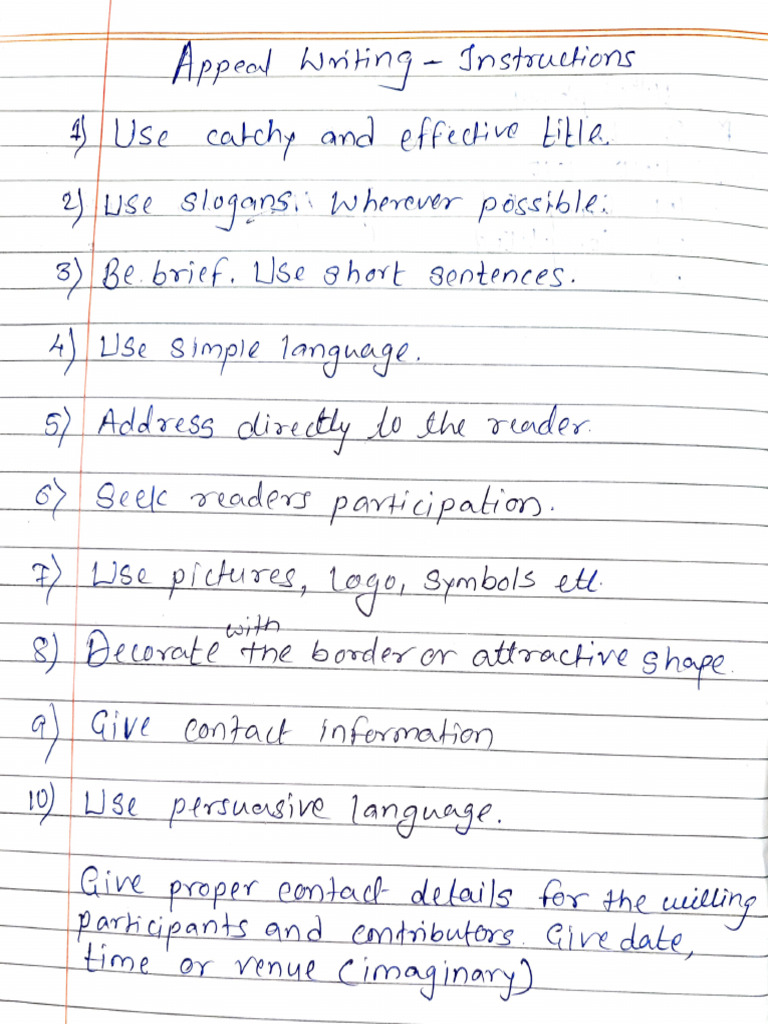 Appeal Writing - Instructions
1) Use catchy and effective title.
2) Use slogans. Wherever possible.
3) Be brief. Use short sentences.
4) Use simple language.
5) Address directly to the reader.
6) Seek readers participation.
7) Use pictures, logo, symbols etc.
with
8) Decorate the border or attractive shape.
9) Give contact information
10) Use persuasive language.
Give proper contact details for the willing
participants and contributors. Give date,
time or venue (imaginary)